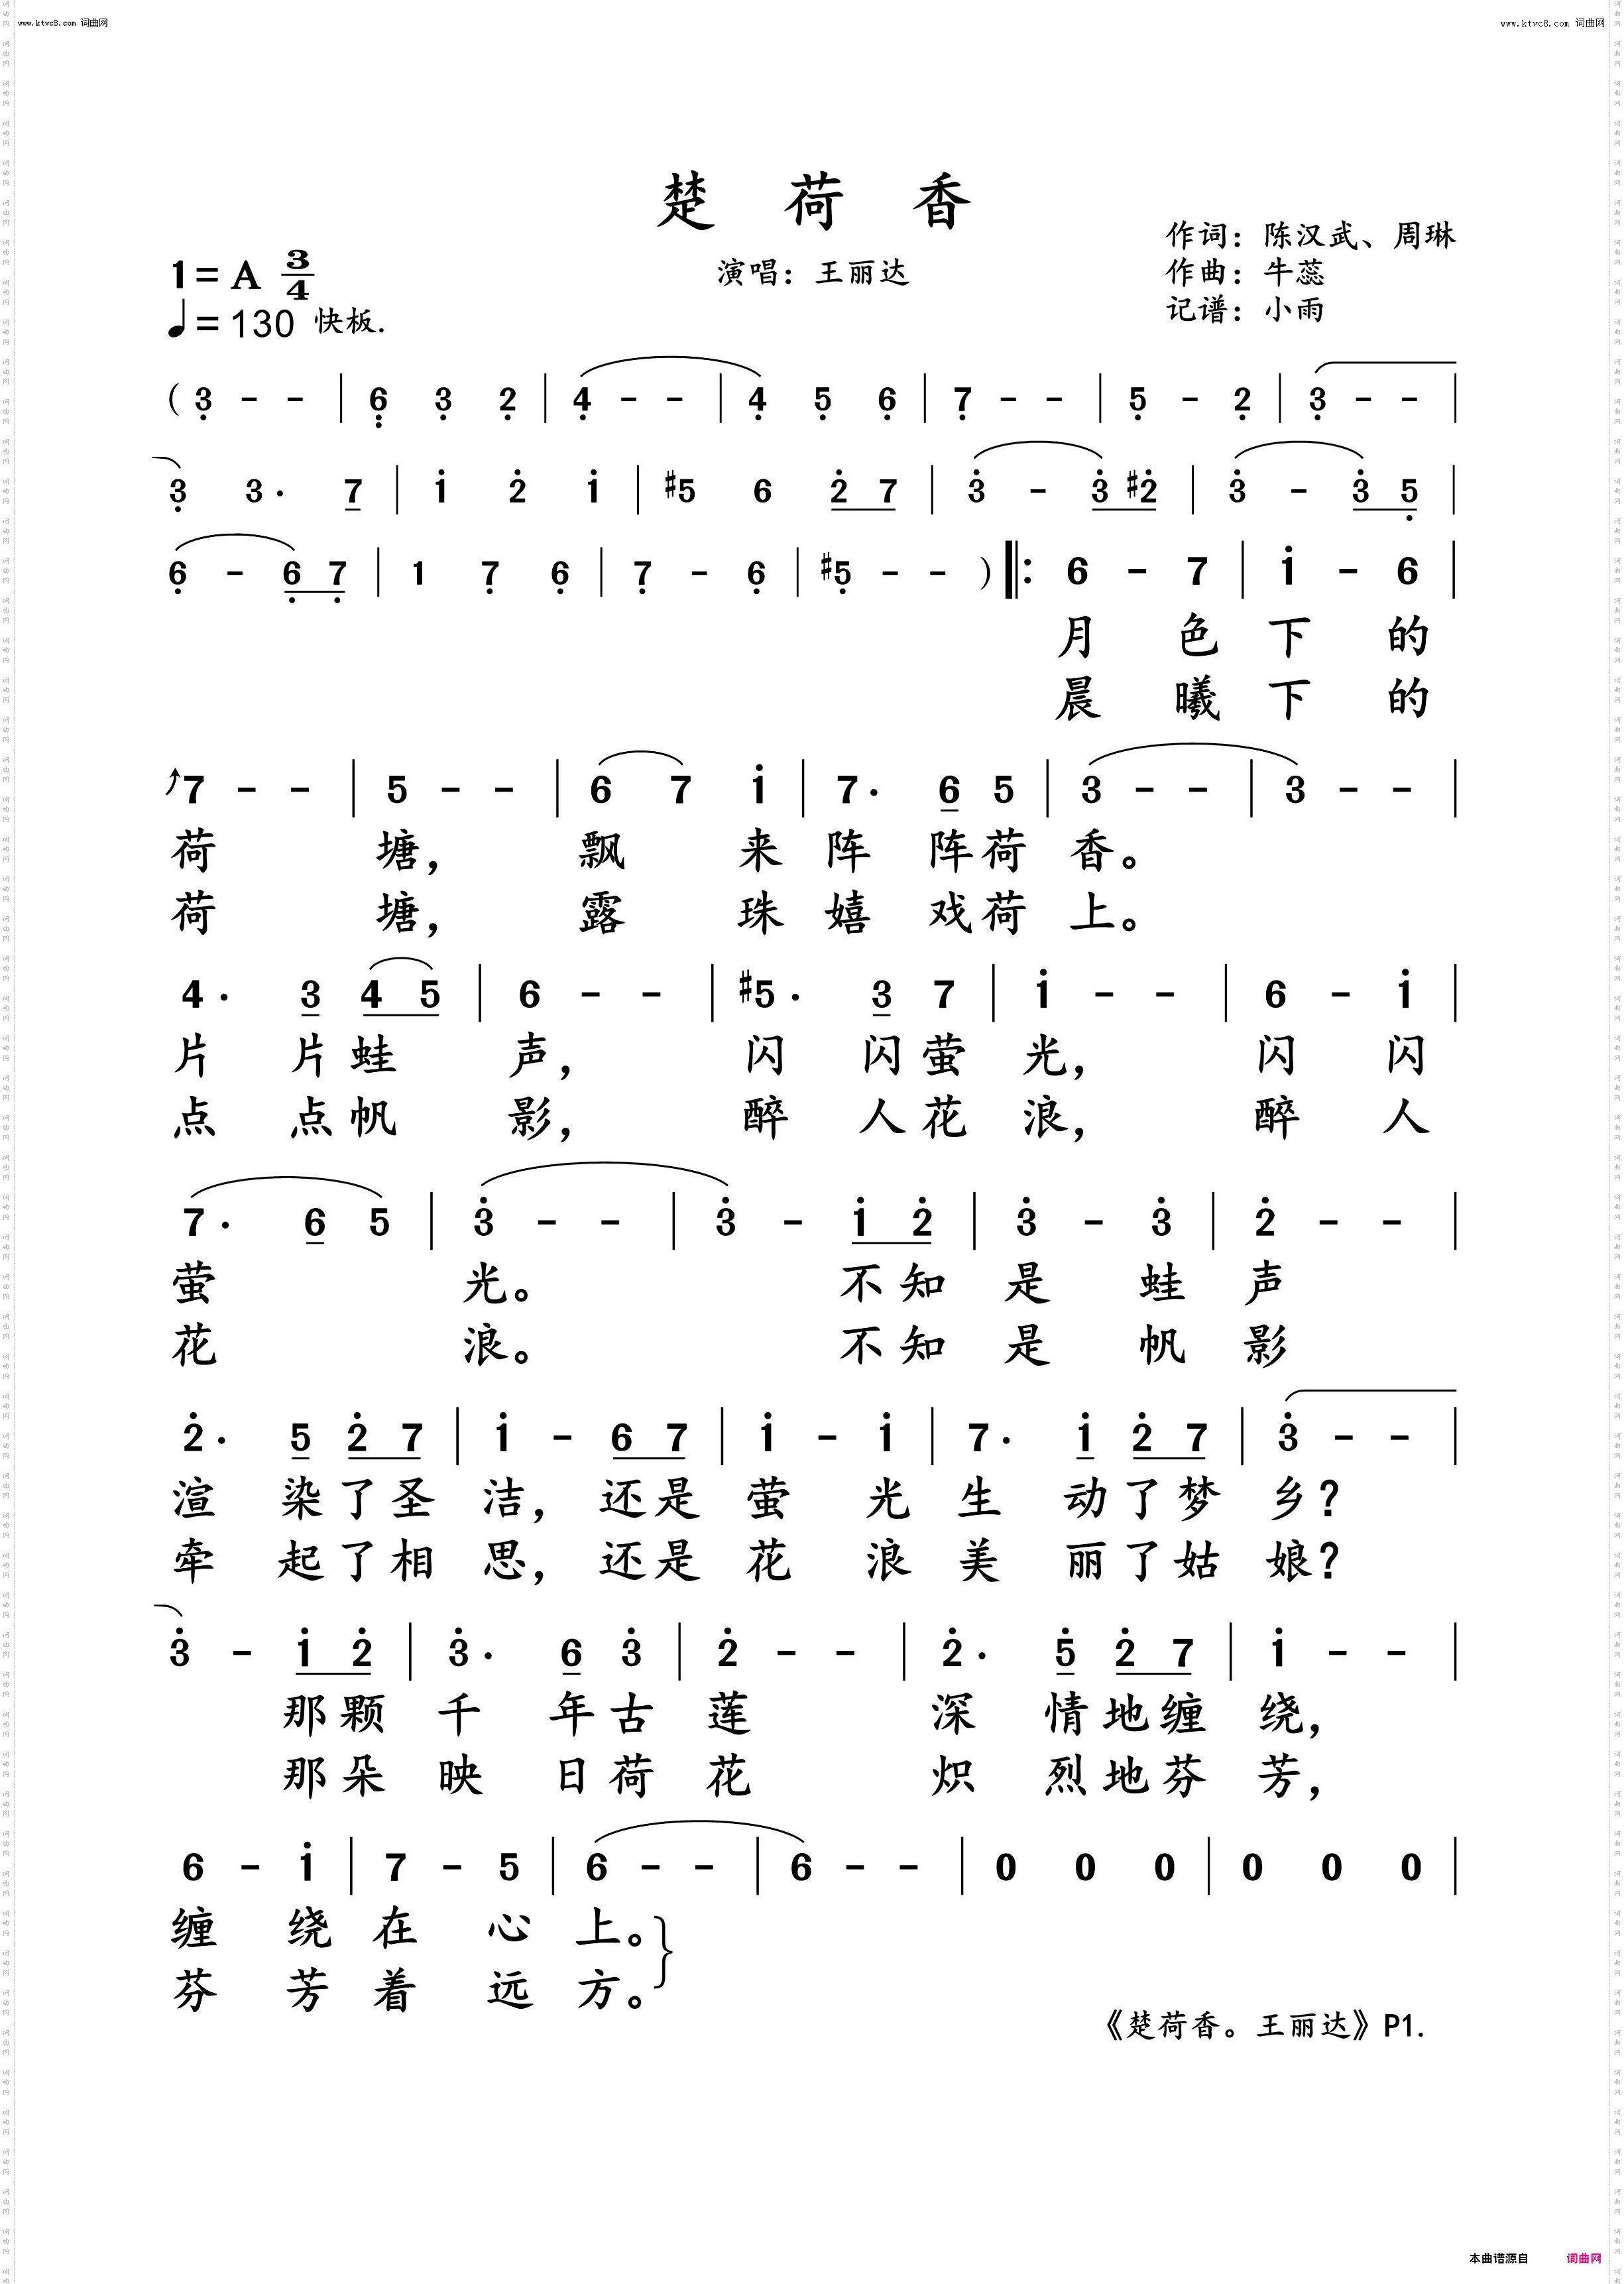 www.ktvc8.com 词曲网
www.ktvc8.com 词曲网
楚 荷 香
作词：陈汉武、周琳
1=A 3/4
演唱：王丽达
作曲：牛蕊
♩=130 快板.
记谱：小雨
( 3̣ - - | 6̣̣ 3̣ 2̣ | 4̣ - - | 4̣ 5̣ 6̣ | 7̣ - - | 5̣ - 2̣ | 3̣ - - |
3̣ 3· 7 | 1̇ 2̇ 1̇ | #5 6 2̇ 7 | 3̇ - 3̇ #2̇ | 3̇ - 3̇ 5̣ |
6̣ - 6̣ 7̣ | 1 7̣ 6̣ | 7̣ - 6̣ | #5̣ - - ) ‖: 6 - 7 | 1̇ - 6 |
月 色 下 的
晨 曦 下 的
7 - - | 5 - - | 6 7 1̇ | 7· 6 5 | 3 - - | 3 - - |
荷 塘， 飘 来 阵 阵 荷 香。
荷 塘， 露 珠 嬉 戏 荷 上。
4· 3 4 5 | 6 - - | #5· 3 7 | 1̇ - - | 6 - 1̇ |
片 片 蛙 声， 闪 闪 萤 光， 闪 闪
点 点 帆 影， 醉 人 花 浪， 醉 人
7· 6 5 | 3̇ - - | 3̇ - 1̇ 2̇ | 3̇ - 3̇ | 2̇ - - |
萤 光。 不 知 是 蛙 声
花 浪。 不 知 是 帆 影
2̇· 5 2̇ 7 | 1̇ - 6 7 | 1̇ - 1̇ | 7· 1̇ 2̇ 7 | 3̇ - - |
渲 染 了 圣 洁， 还 是 萤 光 生 动 了 梦 乡？
牵 起 了 相 思， 还 是 花 浪 美 丽 了 姑 娘？
3̇ - 1̇ 2̇ | 3̇· 6 3̇ | 2̇ - - | 2̇· 5̇ 2̇ 7 | 1̇ - - |
那 颗 千 年 古 莲 深 情 地 缠 绕，
那 朵 映 日 荷 花 炽 烈 地 芬 芳，
6 - 1̇ | 7 - 5 | 6 - - | 6 - - | 0 0 0 | 0 0 0 |
缠 绕 在 心 上。
芬 芳 着 远 方。
《楚荷香。王丽达》P1.
本曲谱源自 词曲网